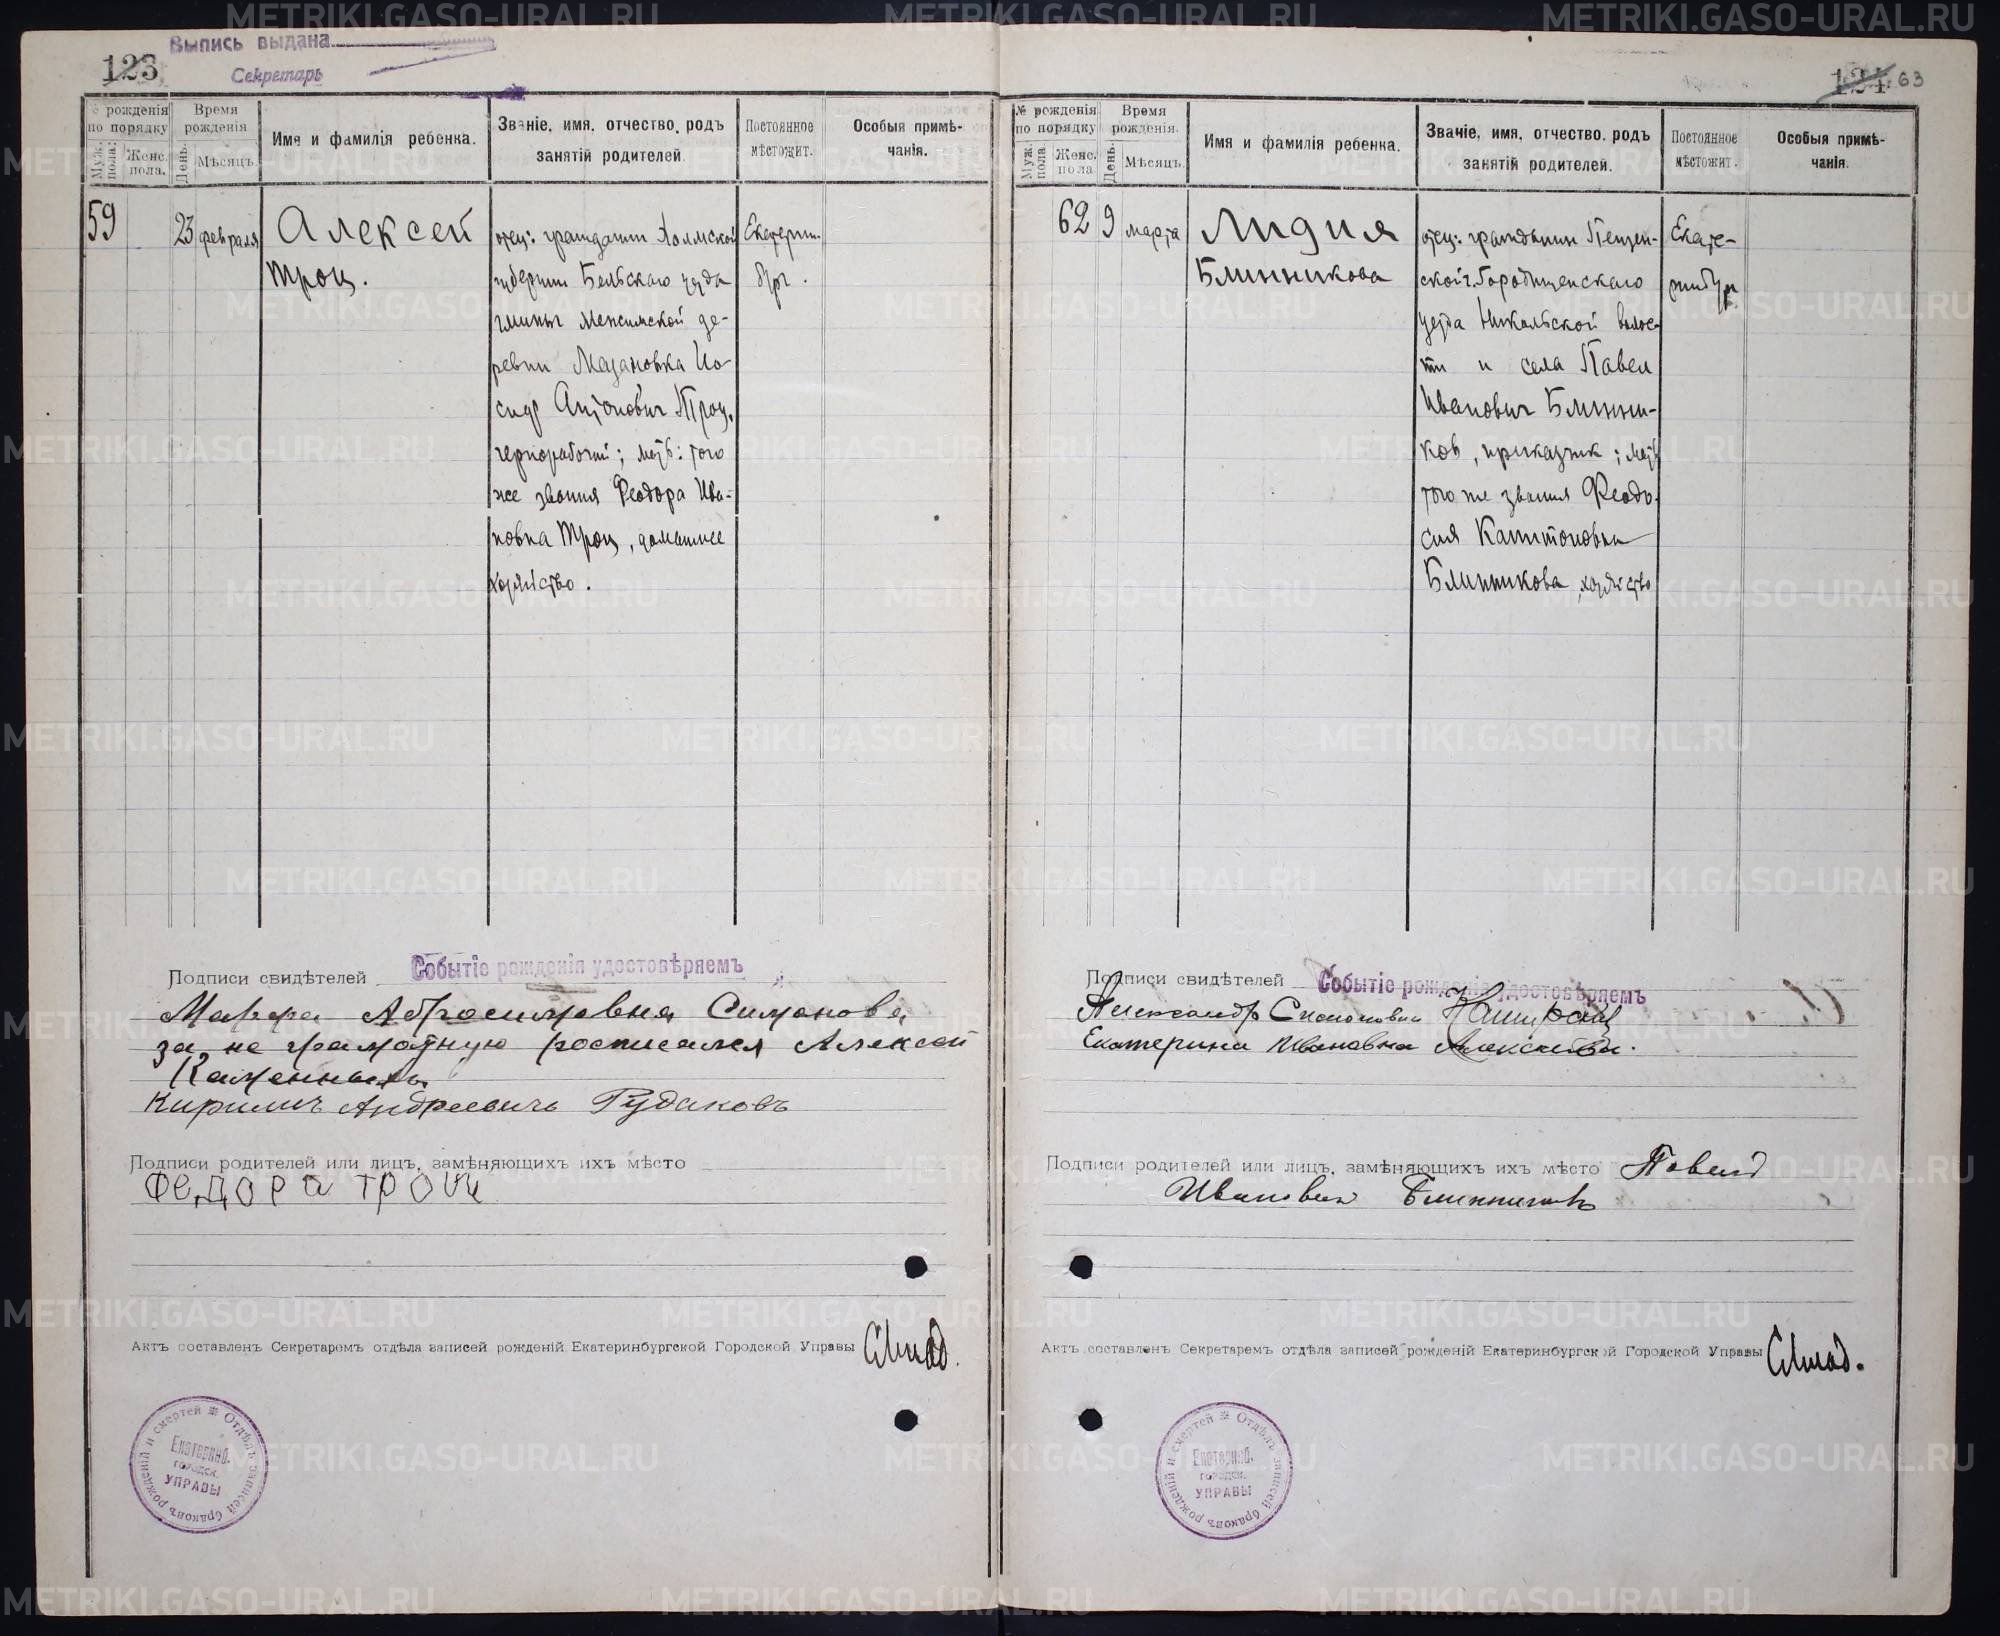 Выпись выдана
Секретарь
123
№ рожденія по порядку
Муж. пола.
Женс. пола.
Время рожденія
День.
Мѣсяцъ.
Имя и фамилія ребенка.
Званіе, имя, отчество, родъ занятій родителей.
Постоянное мѣстожит.
Особыя примѣчанія.
59
23
февраля
Алексей
Троц.
отец: гражданин Холмской
губернии Бельскаго уезда
гмины
деревни Мазановка Ио-
сиф Антонович Троц,
чернорабочий; мать: того
же звания Феодора Ива-
новна Троц, домашнее
хозяйство.
Екатерин-
бург.
Подписи свидѣтелей
Событіе рожденія удостовѣряемъ
Мавра Абросимовна Симонова
за не грамотную росписался Алексей
Каменныхъ
Кирилъ Андреевичъ Рудаковъ
Подписи родителей или лицъ, замѣняющихъ ихъ мѣсто
Федора Троц
Актъ составленъ Секретаремъ отдѣла записей рожденій Екатеринбургской Городской Управы
Отдѣлъ записей браковъ рожденій и смертей
Екатеринб.
городск.
УПРАВЫ
124 63
№ рожденія по порядку
Муж. пола.
Женс. пола
Время рожденія.
День.
Мѣсяцъ.
Имя и фамилия ребенка.
Званіе, имя, отчество, родъ занятій родителей.
Постоянное мѣстожит.
Особыя примѣчанія.
62
9
марта
Лидия
Блинникова
отец: гражданин Пензен-
ской г. Городищенскаго
уезда Никольской волос-
ти и села Павел
Иванович Блинни-
ков, приказчик; мать
того же звания Феодо-
сия Капитоновна
Блинникова, хозяйство
Екате-
ринбург
Подписи свидѣтелей
Событіе рожденія удостовѣряемъ
Александр
Екатерина Ивановна
Подписи родителей или лицъ, замѣняющихъ ихъ мѣсто Павелъ
Ивановичъ Блинниковъ
Актъ составленъ Секретаремъ отдѣла записей рожденій Екатеринбургской Городской Управы
Отдѣлъ записей браковъ рожденій и смертей
Екатеринб.
городск.
УПРАВЫ
METRIKI.GASO-URAL.RU